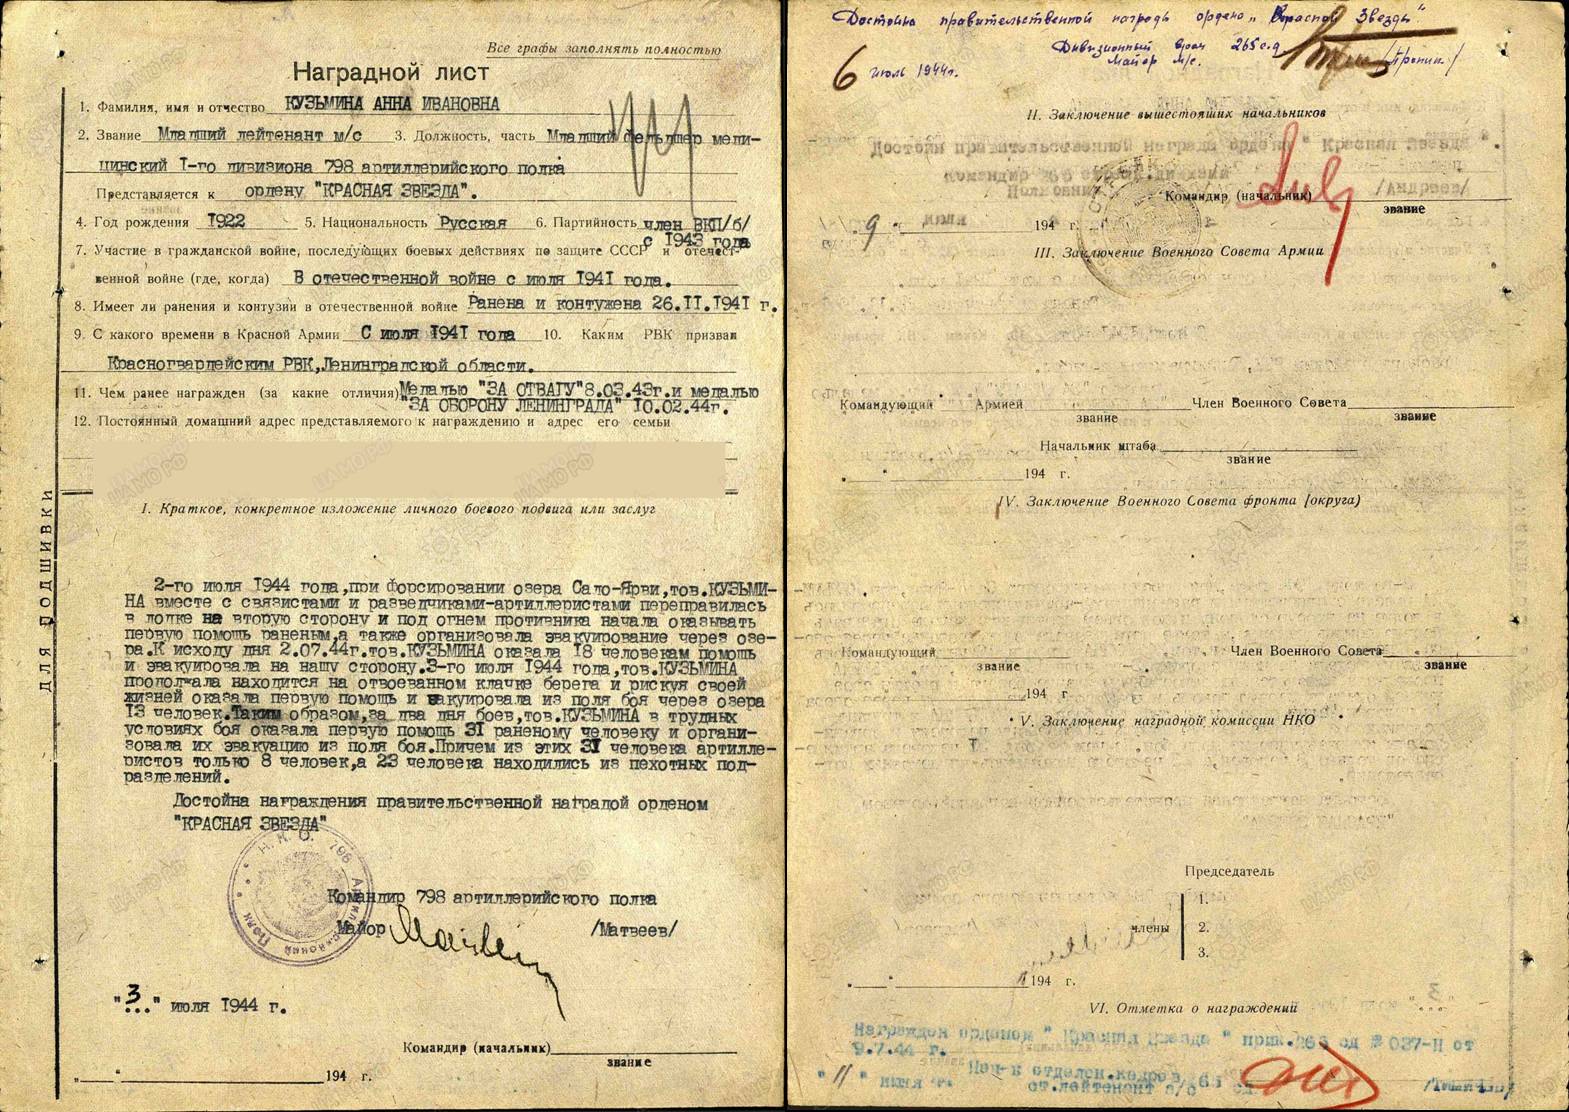 Все графы заполнять полностью
Наградной лист
1. Фамилия, имя и отчество КУЗЬМИНА АННА ИВАНОВНА
2. Звание Младший лейтенант м/с 3. Должность, часть Младший фельдшер меди-
цинский I-го дивизиона 798 артиллерийского полка
Представляется к ордену "КРАСНАЯ ЗВЕЗДА".
4. Год рождения 1922 5. Национальность Русская 6. Партийность член ВКП/б/
с 1943 года
7. Участие в гражданской войне, последующих боевых действиях по защите СССР и отечест-
венной войне (где, когда) В отечественной войне с июля 1941 года.
8. Имеет ли ранения и контузии в отечественной войне Ранена и контужена 26.II.1941 г.
9. С какого времени в Красной Армии С июля 1941 года 10. Каким РВК призван
Красногвардейским РВК, Ленинградской области.
11. Чем ранее награжден (за какие отличия) Медалью "ЗА ОТВАГУ" 8.03.43г. и медалью
"ЗА ОБОРОНУ ЛЕНИНГРАДА" 10.02.44г.
12. Постоянный домашний адрес представляемого к награждению и адрес его семьи
I. Краткое, конкретное изложение личного боевого подвига или заслуг
2-го июля 1944 года, при форсировании озера Сало-Ярви, тов. КУЗЬМИ-
НА вместе с связистами и разведчиками-артиллеристами переправилась
в лодке на вторую сторону и под огнем противника начала оказывать
первую помощь раненым, а также организовала эвакуирование через озе-
ра. К исходу дня 2.07.44г. тов. КУЗЬМИНА оказала 18 человекам помощь
и эвакуировала на нашу сторону. 3-го июля 1944 года, тов. КУЗЬМИНА
продолжала находится на отвоеванном клачке берега и рискуя своей
жизней оказала первую помощь и эвакуировала из поля боя через озера
13 человек. Таким образом, за два дня боев, тов. КУЗЬМИНА в трудных
условиях боя оказала первую помощь 31 раненому человеку и органи-
зовала их эвакуацию из поля боя. Причем из этих 31 человека артилле-
ристов только 8 человек, а 23 человека находились из пехотных под-
разделений.
Достойна награждения правительственной наградой орденом
"КРАСНАЯ ЗВЕЗДА"
Н. К. О. 798 Артиллерийский Полк
Командир 798 артиллерийского полка
Майор /Матвеев/
"3..." июля 1944 г.
Командир (начальник)
звание
194 г.
ДЛЯ ПОДШИВКИ
Достойна правительственной награды ордена "Красной Звезды"
Дивизионный врач 265 с.д.
Майор м/с.
6 июль 1944г.
II. Заключение вышестоящих начальников
Достоин правительственной награды ордена "Красная Звезда"
Командир 265 стрелк. дивизии
Полковник
Командир (начальник) /Андреев/
звание
9 июля 194 г.
III. Заключение Военного Совета Армии
Командующий Армией Член Военного Совета
звание звание
Начальник штаба
звание
194 г.
IV. Заключение Военного Совета фронта (округа)
Командующий Член Военного Совета
звание звание
194 г
V. Заключение наградной комиссии НКО
Председатель
члены
1.
2.
3.
194 г.
VI. Отметка о награждений
Награжден орденом "Красная Звезда" прик. 265 сд № 037-Н от
9.7.44 г.
Нач-к отделен. кадров 265
"11" июля г. ст. лейтенант а/с